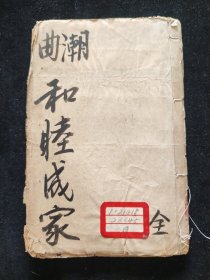 潮曲
和睦成家
全